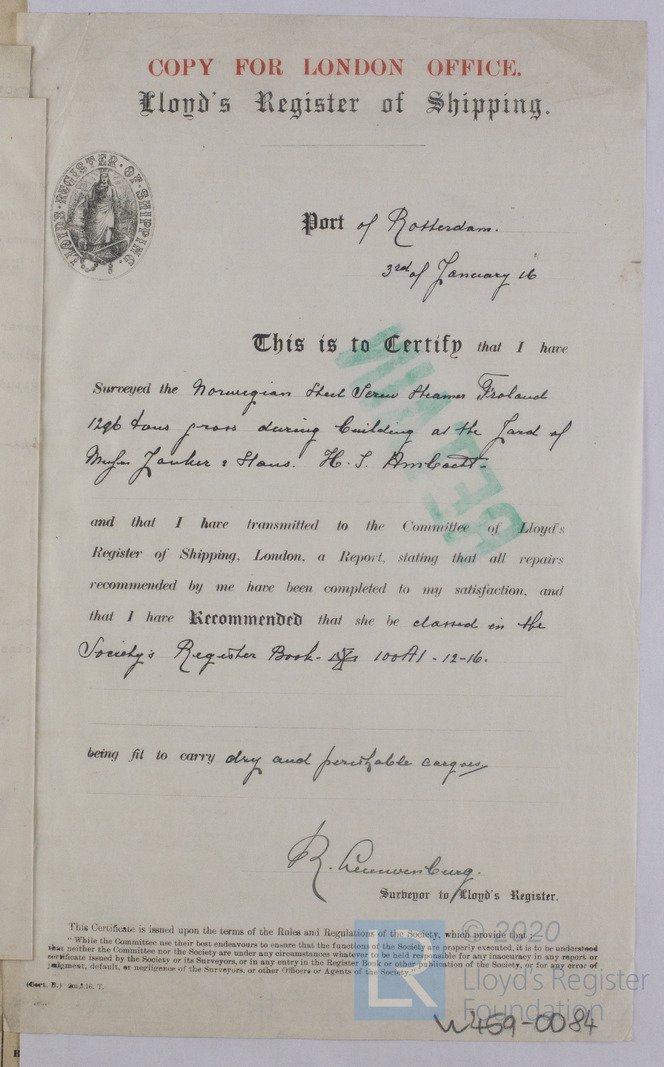 COPY FOR LONDON OFFICE.
Lloyd's Register of Shipping.
LLOYDS·REGISTER·OF·SHIPPING.
Port of Rotterdam.
3rd of January 16
This is to Certify that I have
Surveyed the Norwegian Steel Screw Steamer Froland
1296 tons gross during building at the Yard of
Messrs Jonker & Stans. H. I. Ambacht.
and that I have transmitted to the Committee of Lloyd's
Register of Shipping, London, a Report, stating that all repairs
recommended by me have been completed to my satisfaction, and
that I have Recommended that she be classed in the
Society's Register Book - 100A1 - 12-16.
being fit to carry dry and perishable cargoes
R. Leuwenburg.
Surveyor to Lloyd's Register.
This Certificate is issued upon the terms of the Rules and Regulations of the Society, which provide that:—
"While the Committee use their best endeavours to ensure that the functions of the Society are properly executed, it is to be understood
that neither the Committee nor the Society are under any circumstances whatever to be held responsible for any inaccuracy in any report or
certificate issued by the Society or its Surveyors, or in any entry in the Register Book or other publication of the Society, or for any error of
judgment, default, or negligence of the Surveyors, or other Officers or Agents of the Society."
© 2020
LR
Lloyd's Register
Foundation
W459-0084